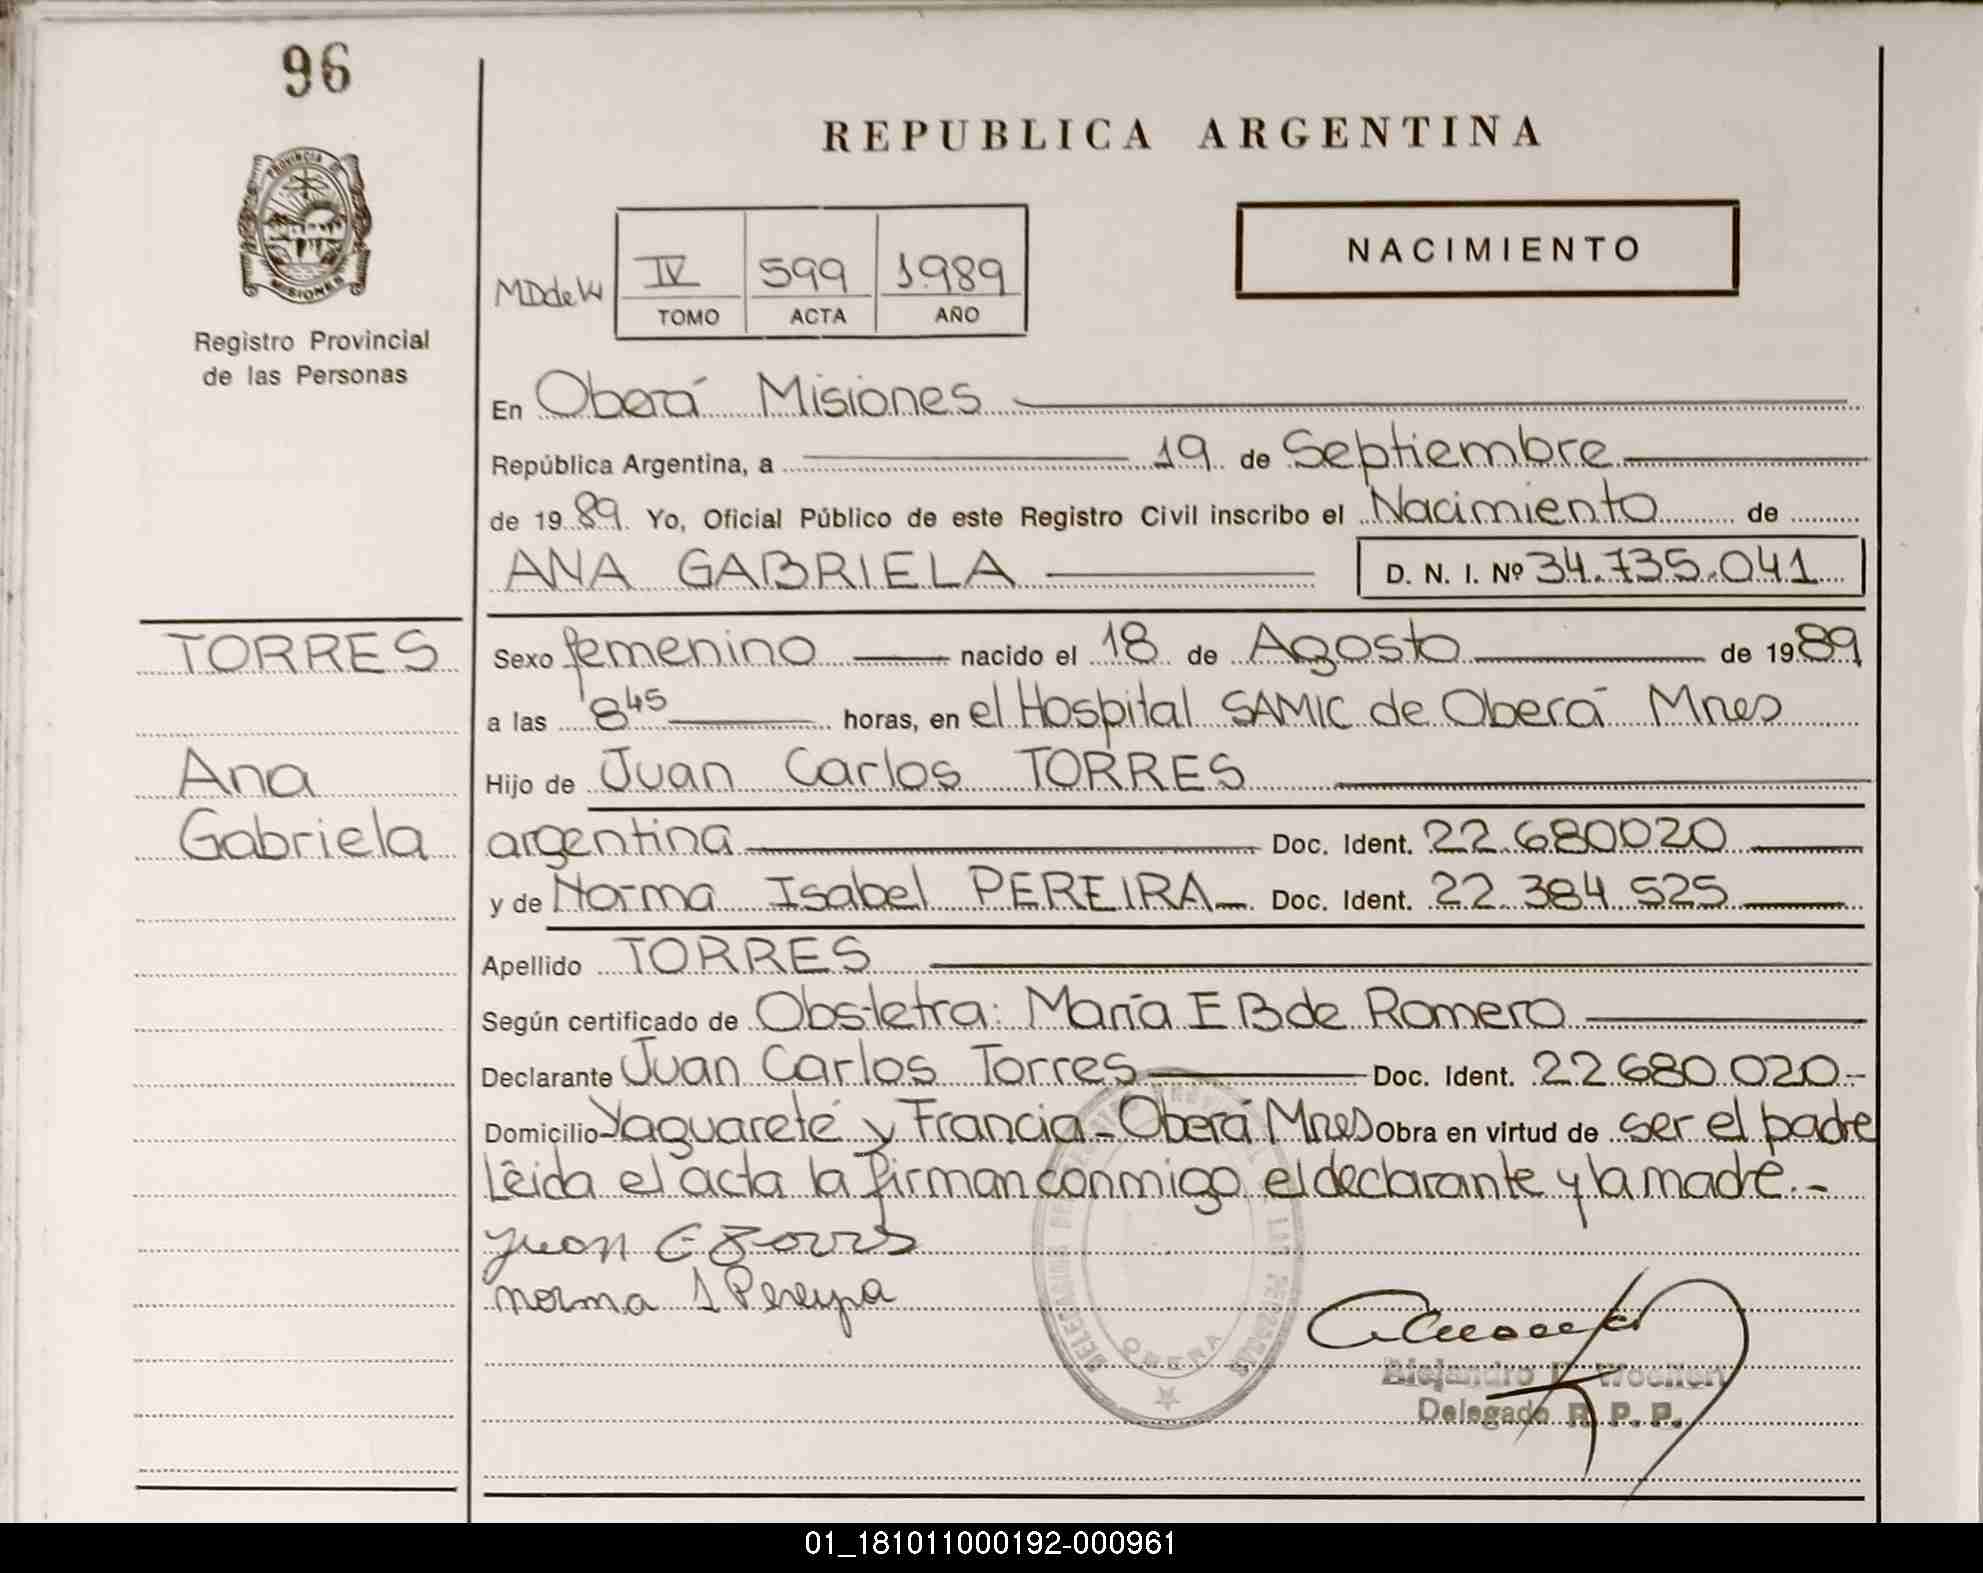 96
REPUBLICA ARGENTINA
PROVINCIA DE
MISIONES
Registro Provincial
de las Personas
NACIMIENTO
MDdeW
IV 599 1989
TOMO ACTA AÑO
En Oberá Misiones
República Argentina, a 19 de Septiembre
de 1989. Yo, Oficial Público de este Registro Civil inscribo el Nacimiento de
ANA GABRIELA D. N. I. Nº 34.735.041
TORRES
Ana
Gabriela
Sexo femenino nacido el 18 de Agosto de 1989
a las 8 45 horas, en el Hospital SAMIC de Oberá Mnes
Hijo de Juan Carlos TORRES
argentina Doc. Ident. 22.680020
y de Norma Isabel PEREIRA Doc. Ident. 22.384.525
Apellido TORRES
Según certificado de Obstetra: María E B de Romero
Declarante Juan Carlos Torres Doc. Ident. 22.680.020.-
Domicilio Yaguareté y Francia - Oberá Mnes Obra en virtud de ser el padre
Leída el acta la firman conmigo el declarante y la madre.-
Juan C Torres
norma I Pereyra
OBERA
Alejandro
Delegado R. P. P.
01_181011000192-000961